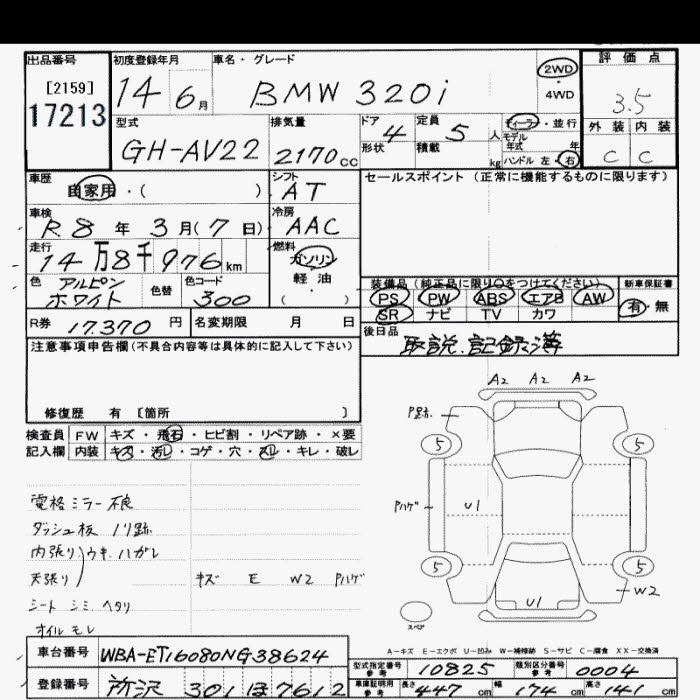 出品番号
[2159]
17213
初度登録年月
14 6月
車名・グレード
BMW 320i
2WD・4WD
評価点
3.5
外装 内装
C C
型式
GH-AV22
排気量
2170cc
ドア 4
形状
定員 5人
積載 kg
ディーラー・並行
モデル年式 年
ハンドル 左・右
車歴
自家用・( )
シフト
AT
セールスポイント(正常に機能するものに限ります)
車検
R8年 3月(7日)
冷房
AAC
走行
14万8千976km
燃料
ガソリン
軽油
( )
色 アルピンホワイト
色替
色コード
300
装備品(純正品に限り○をつけてください)
PS PW ABS エアB AW
SR ナビ TV カワ
新車保証書
有・無
R券 17.370円
名変期限 月 日
後日品
取説.記録簿
注意事項申告欄(不具合内容等は具体的に記入して下さい)
修復歴 有 [箇所 ]
検査員 FW キズ・飛石・ヒビ割・リペア跡・×要
記入欄 内装 キズ・汚れ・コゲ・穴・スレ・キレ・破レ
A2 A2 A2
P跡.
5 5
電格ミラー不良
ダッシュ板 ノリ跡
内張り ウキ ハガレ
天張り
シート シミ ヘタリ
オイル モレ
キズ E W2 Pハゲ
Pハゲ
U1
5 5
W2
U1
スペア
A-キズ E-エクボ U-凹み W-補修跡 S-サビ C-腐食 XX-交換済
車台番号 WBA-ET16080NG38624
登録番号 所沢 301 ほ 7612
型式指定番号 参考 10825
類別区分番号 参考 0004
車庫証明用 参考 長さ 447cm 幅 174cm 高さ 141cm